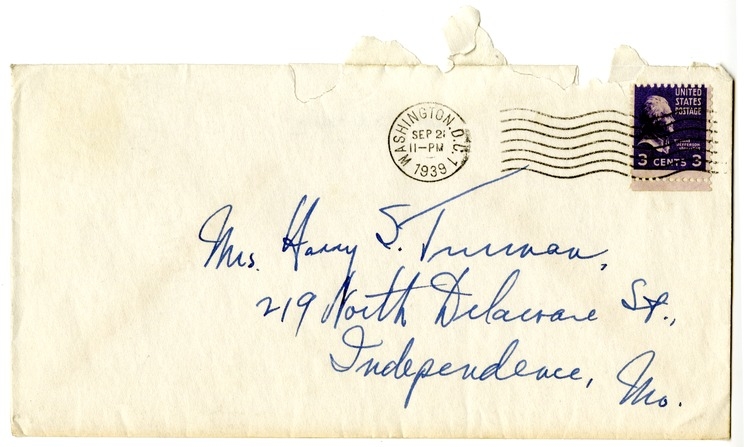 WASHINGTON, D.C. 1
SEP 2
11-PM
1939
UNITED
STATES
POSTAGE
JEFFERSON
3 CENTS 3
Mrs. Harry S. Truman,
219 North Delaware St.,
Independence, Mo.